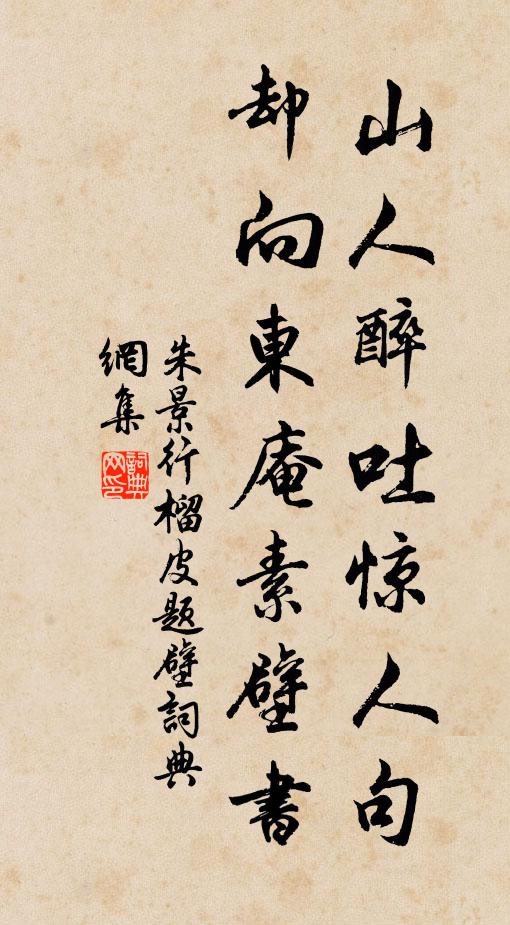 山人醉吐惊人句
却向東庵素壁書
朱景行榴皮题壁詞典
網集
詞典网印